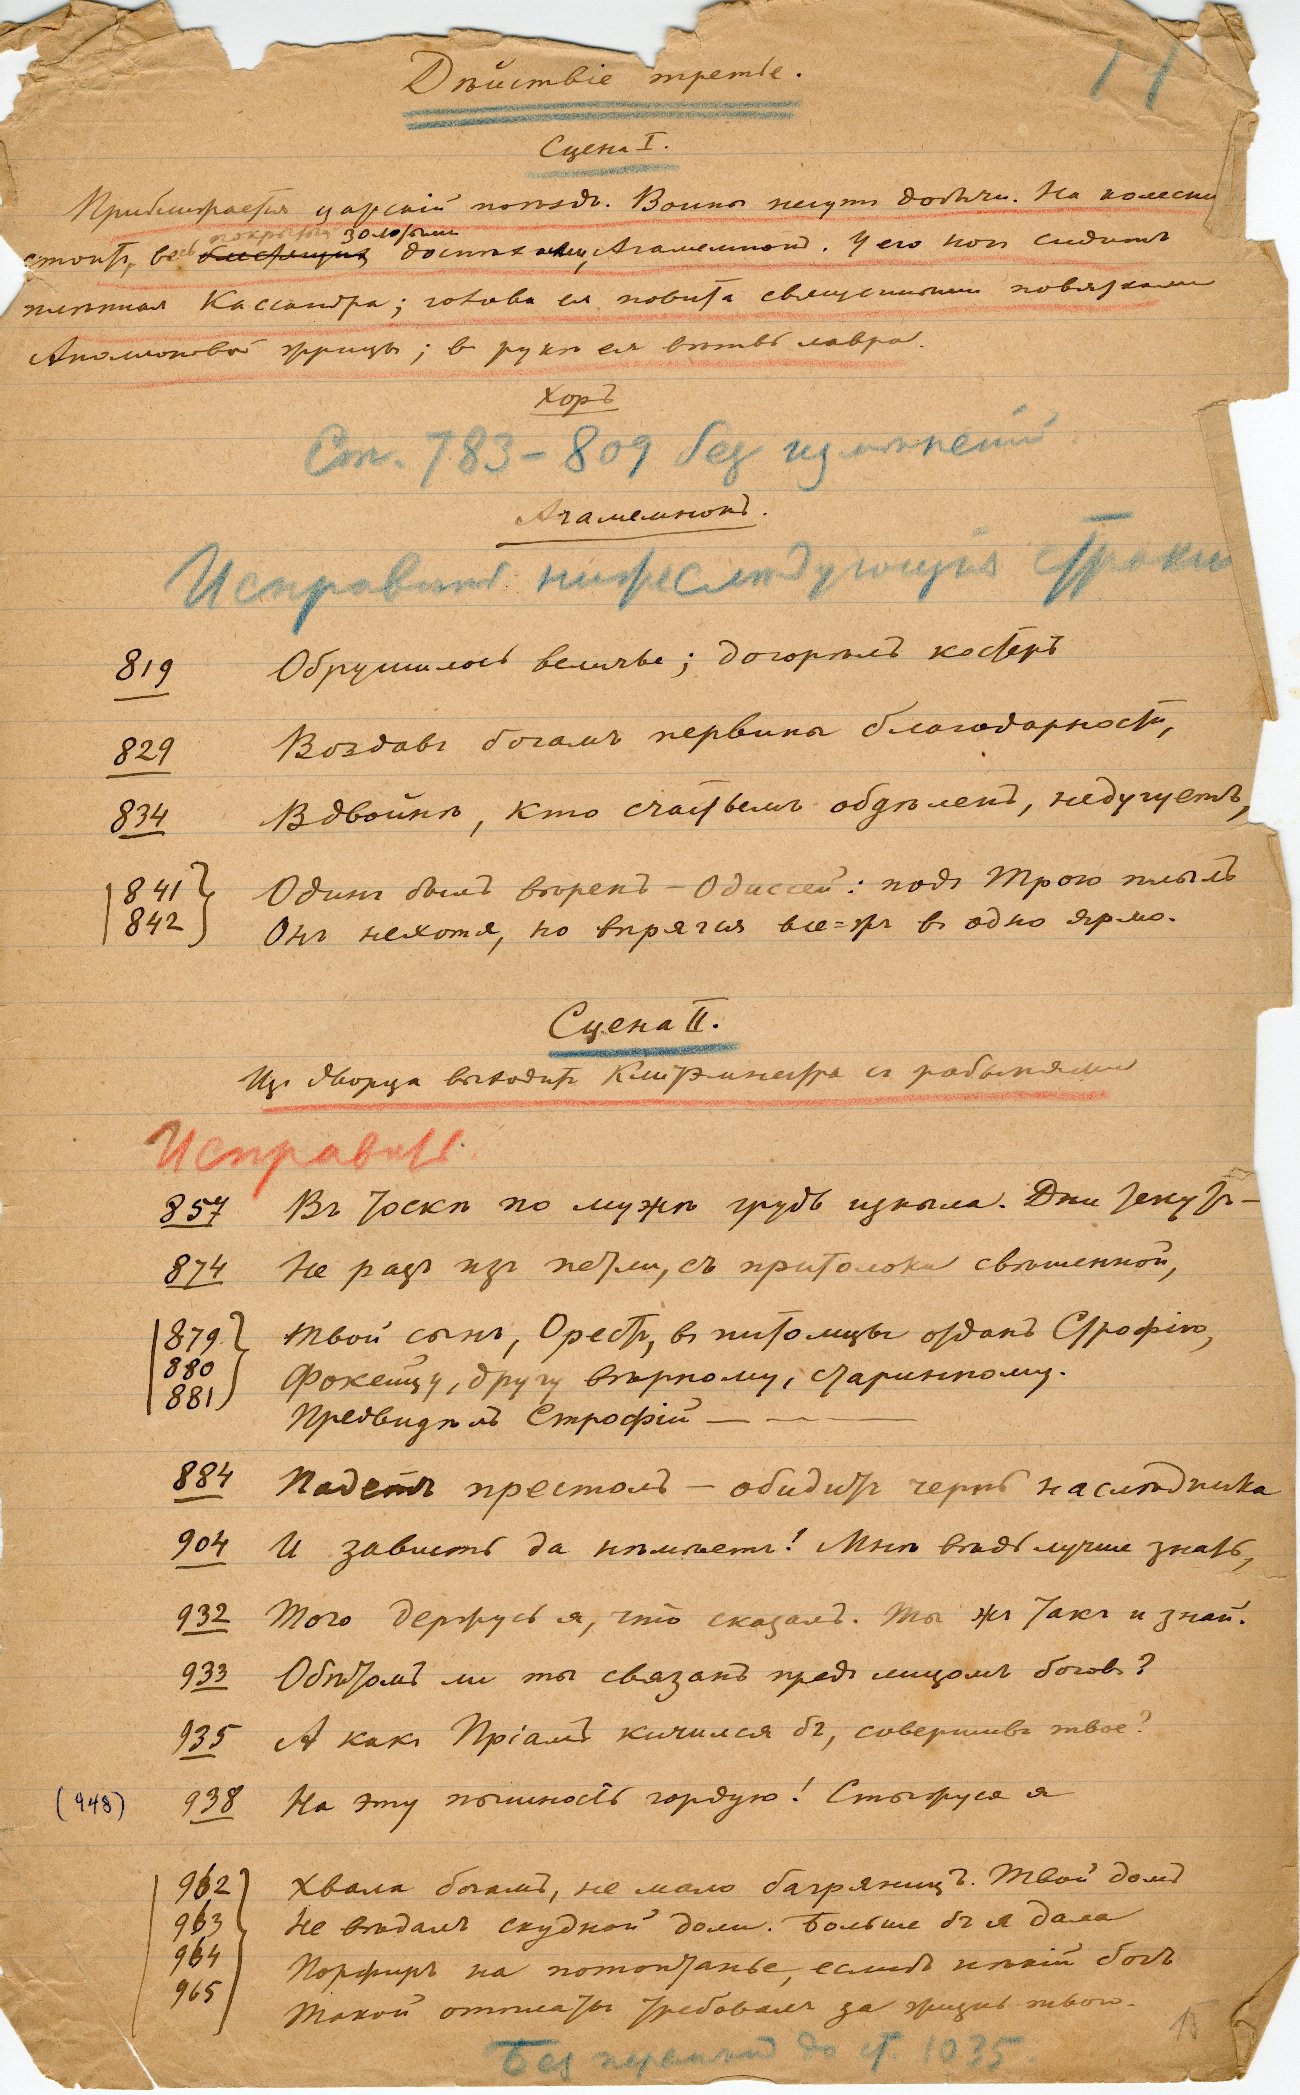 Дѣйствіе третье.
Сцена I.
Приближается царскій поѣздъ. Воины несутъ добычу. На колесни
стоитъ, весь покрытый золотыми
блестящихъ доспѣхами, Агамемнонъ. У его ногъ сидитъ
плѣнная Кассандра; голова ея повита священными повязками
Аполлоновой жрицы; въ рукѣ ея вѣтвь лавра.
Хоръ
Ст. 783–809 без измѣненій
Агамемнонъ.
Исправить нижеслѣдующія строки
819 Обрушилось величье; догорѣлъ костеръ
829 Воздавъ богамъ первины благодарности,
834 Вдвойнѣ, кто счастьемъ обдѣленъ, недугуетъ,
841 Одинъ былъ вѣренъ – Одиссей: подъ Трою плылъ
842 Онъ нехотя, но впрягся все=жъ въ одно ярмо.
Сцена II.
Изъ дворца выходитъ Клитэмнестра съ рабынями
Исправить
857 Въ тоскѣ по мужѣ грудь изныла. Дни текутъ –
874 Не разъ изъ петли, съ притолоки свѣшенной,
879 Твой сынъ, Орестъ, въ питомцы отданъ Строфію,
880 Фокейцу, другу вѣрному, старинному.
881 Предвидѣлъ Строфій — — —
884 Падетъ престолъ – обидитъ чернь наслѣдника
904 И зависть да нѣмѣетъ! Мнѣ вѣдь лучше знать,
932 Того держусь я, что сказалъ. Ты жъ такъ и знай.
933 Обѣтомъ ли ты связанъ предъ лицомъ боговъ?
935 А какъ Пріамъ кичился бъ, совершивъ твое?
(948) 938 На эту пышность гордую! Стыжуся я
962 Хвала богамъ, не мало багряницъ. Твой домъ
963 Не вѣдалъ скудной доли. Больше бъ я дала
964 Порфиръ на потоптанье, еслибъ нѣкій богъ
965 Такой отплаты требовалъ за жизнь твою.
Без перемѣнъ до ст. 1035.